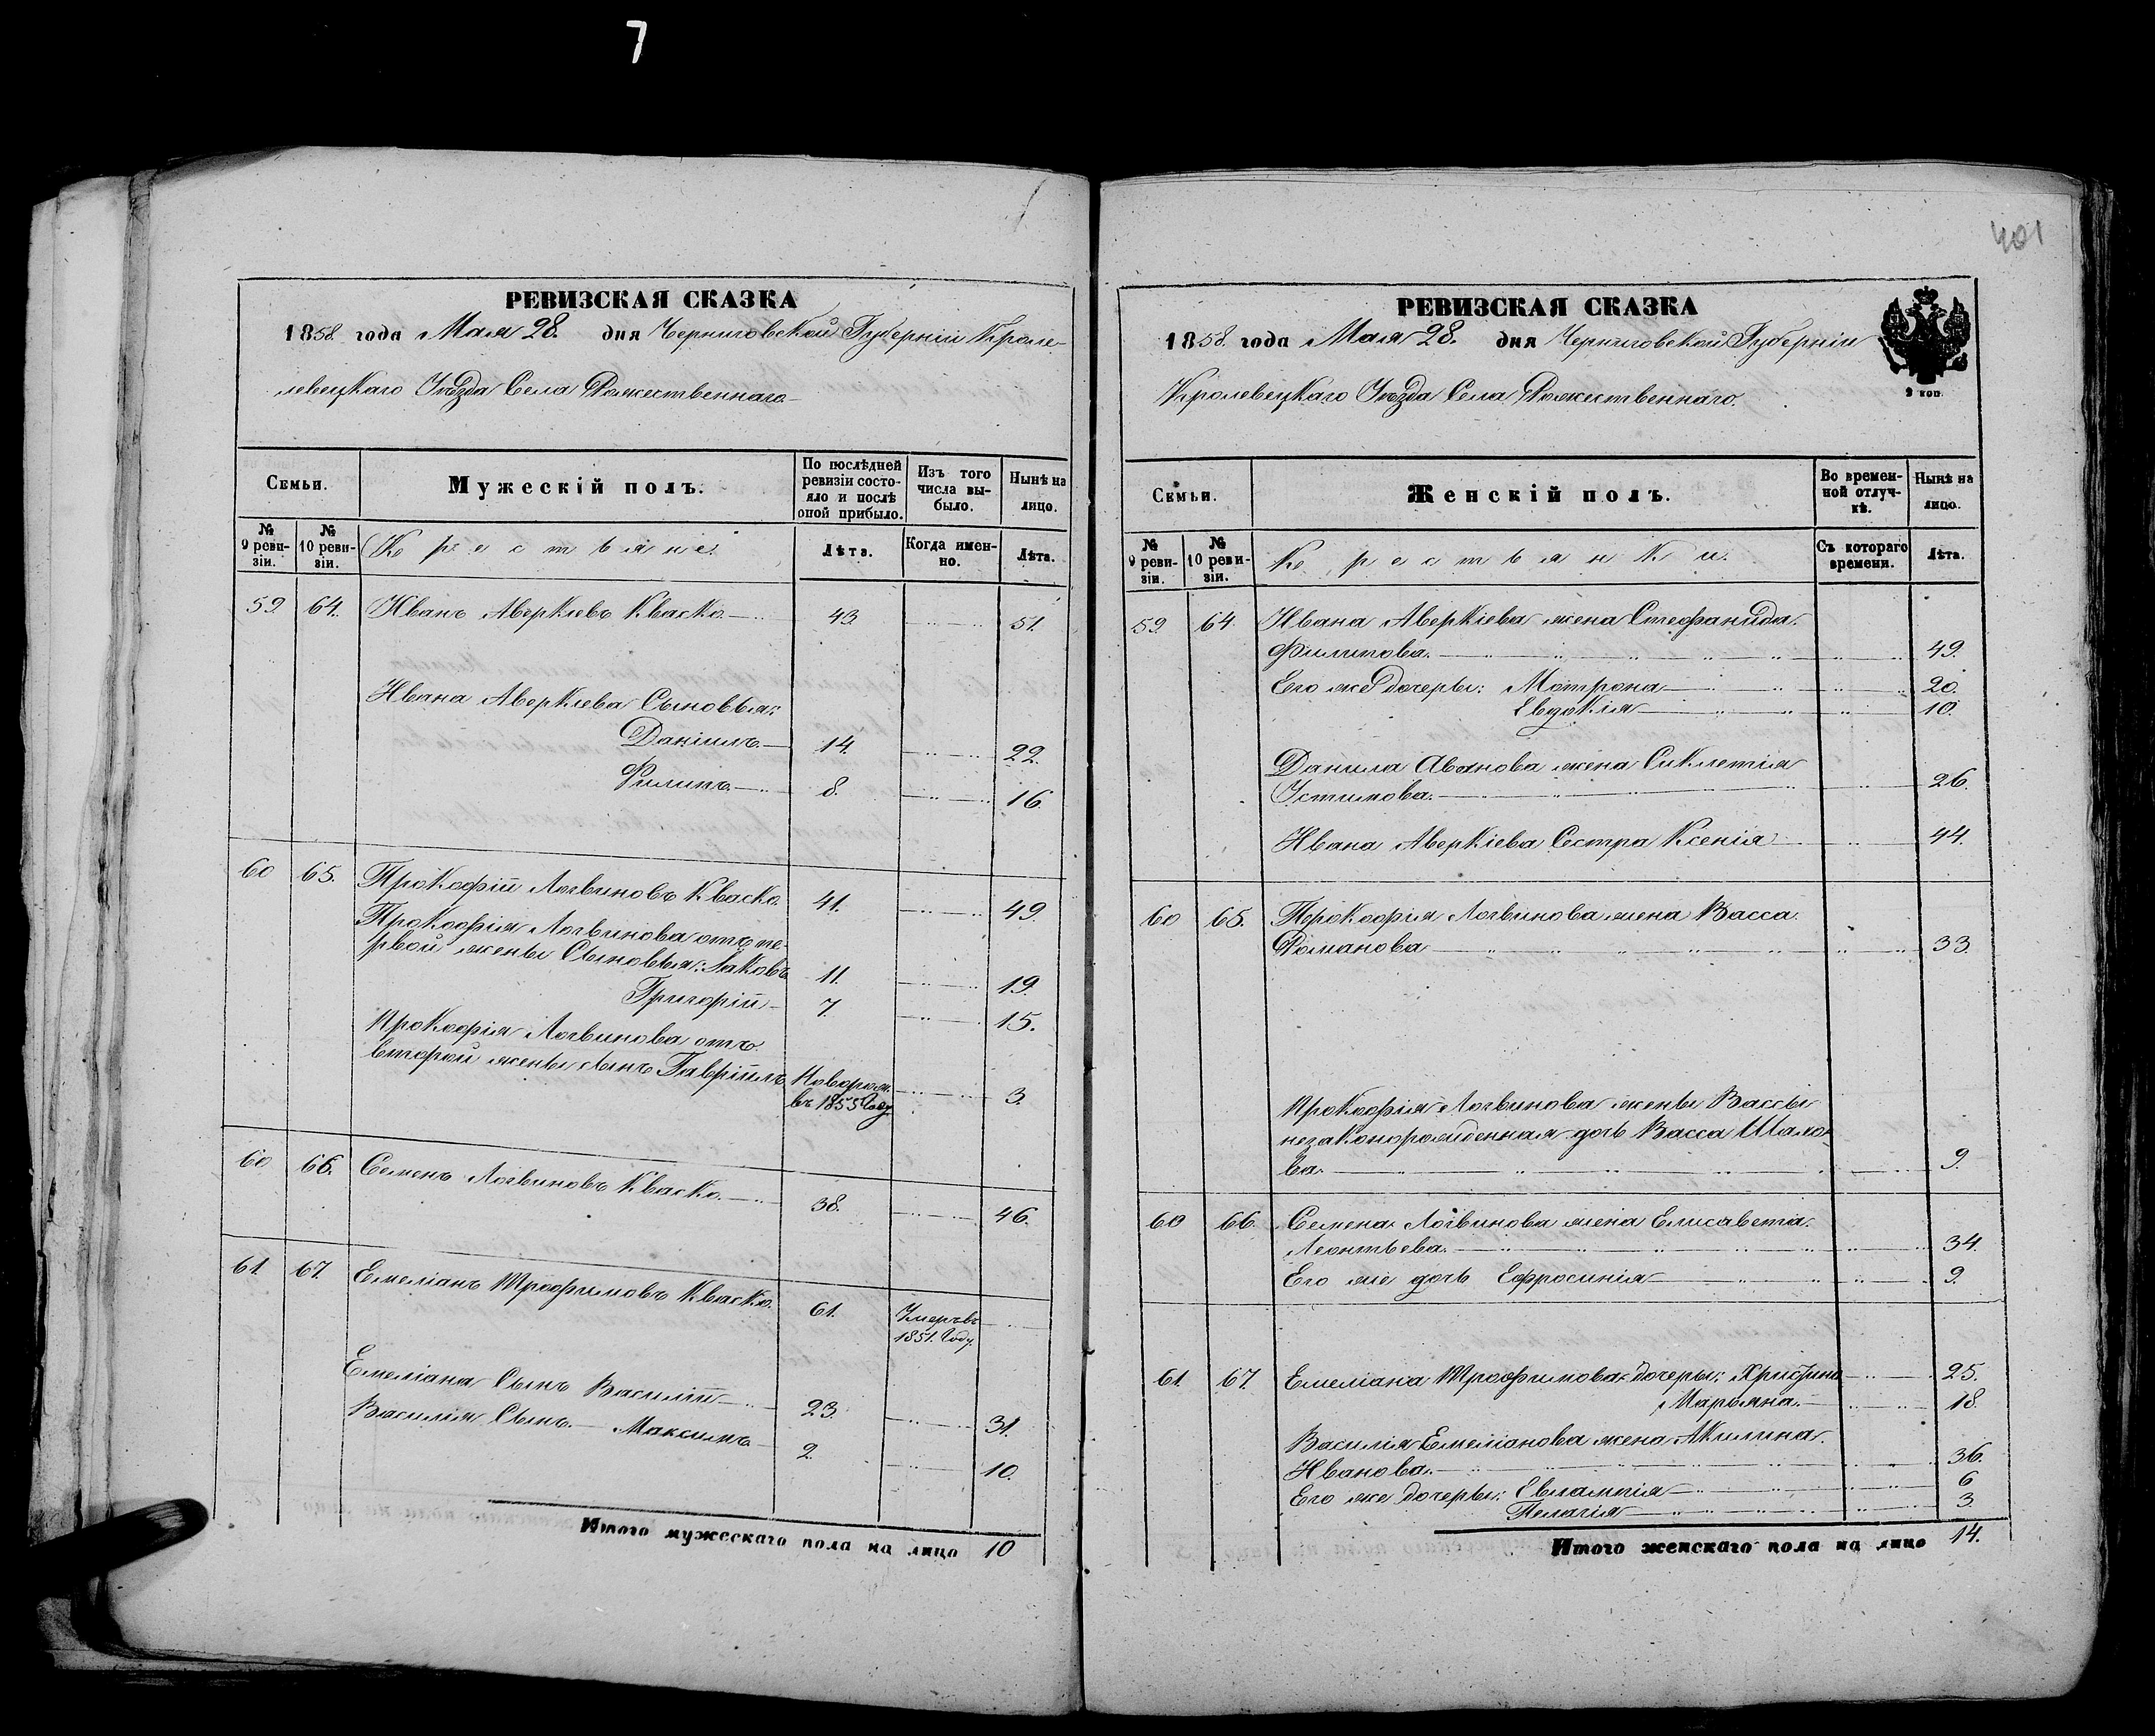 7
401
РЕВИЗСКАЯ СКАЗКА
1858. года Мая 28. дня Черниговской Губерніи Кроле-
левецкаго Уѣзда Села Рожественнаго
Семьи.
Мужескій полъ.
По послѣдней ревизіи состояло и послѣ оной прибыло.
Изъ того числа выбыло.
Нынѣ на лицо.
№ 9 ревизіи.
№ 10 ревизіи.
Крестьяне.
Лѣта.
Когда именно.
Лѣта.
59. 64. Иванъ Аверкіевъ Кваско 43 51.
Ивана Аверкіева Сыновья:
Даніилъ 14. 22.
Филипъ 8. 16.
60 65. Прокофій Логвиновъ Кваско 41. 49.
Прокофія Логвинова отъ пе-
рвой жены Сыновья: Іаковъ 11. 19.
Григорій 7. 15.
Прокофія Логвинова отъ
второй жены сынъ Гавріилъ Новорож. въ 1855 Году 3.
60 66. Семенъ Логвиновъ Кваско 38. 46.
61. 67. Емеліанъ Трофимовъ Кваско. 61. Умеръ въ 1851. Году.
Емеліана Сынъ Василій 23. 31.
Василія Сынъ Максимъ 2. 10.
Итого мужескаго пола на лицо 10
РЕВИЗСКАЯ СКАЗКА
1858. года Мая 28. дня Черниговской Губерніи
Кролевецкаго Уѣзда Села Рожественнаго.
2 коп.
Семьи.
Женскій полъ.
Во временной отлучкѣ.
Нынѣ на лицо.
№ 9 ревизіи.
№ 10 ревизіи.
Крестьянки.
Съ котораго времени.
Лѣта.
59. 64. Ивана Аверкіева жена Стефанида
Филипова. 49.
Его же дочеры: Мотрона 20.
Евдокія 10.
Данила Иванова жена Синклетія
Устимова. 26.
Ивана Аверкіева Сестра Ксенія 44.
60 65. Прокофія Логвинова жена Васса
Романова 33.
Прокофія Логвинова жены Вассы
незаконорожденная дочь Васса
ва. 9.
60 66. Семена Логвинова жена Елисавета
Леонтьева. 34.
Его же дочь Ефросинія 9.
61. 67. Емеліана Трофимова дочеры: Христина 25.
Марьяна. 18.
Василія Емеліанова жена Акилина
Иванова. 36.
Его же дочеры: Евлампія 6
Пелагія 3.
Итого женскаго пола на лицо 14.